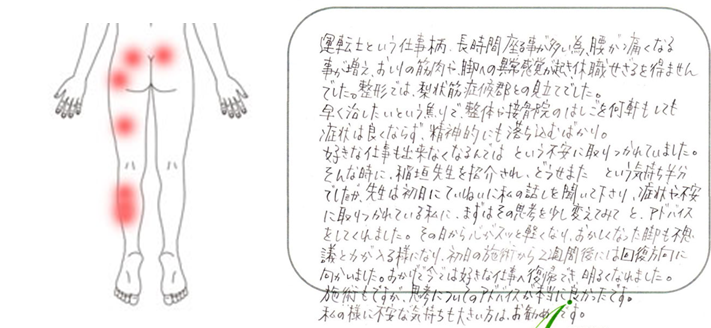 運転士という仕事柄、長時間座る事が多い為、腰が痛くなる
事が増え、おしりの筋肉や、脚への異常感覚が起き休職せざるを得ません
でした。整形では、梨状筋症候群との見立てでした。
早く治したいという焦りで、整体や接骨院のはしごを何軒もしても
症状は良くならず、精神的にも落ち込むばかり。
好きな仕事も出来なくなるんでは という不安に取りつかれていました。
そんな時に、稲垣先生を紹介され、どうせまた という気持ち半分
でしたが、先生は初日にていねいに私の話しを聞いて下さり、症状や不安
に取りつかれている私に、まずはその思考を少し変えてみて と、アドバイス
をしてくれました。その日から心がスッと軽くなり、おかしくなった脚も不思
議と力が入る様になり、初日の施術から2週間後には回復方向に
向かいました。おかげで今では好きな仕事へ復帰でき 明るくなれました。
施術もですが、思考についてのアドバイスが本当に良かったです。
私の様に不安な気持ちも大きい方は、お勧めです。